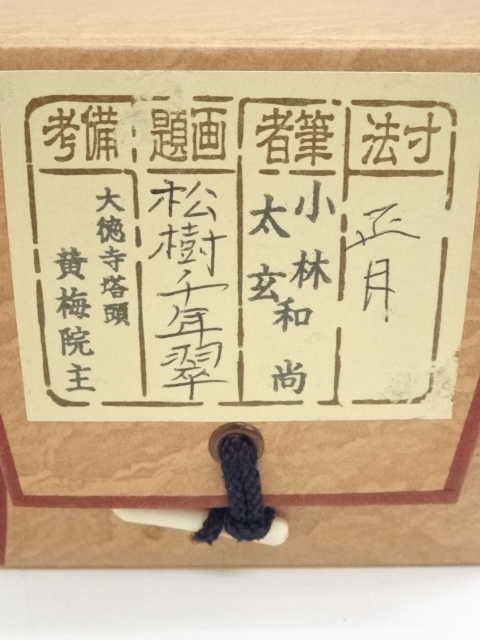 寸法
正月
筆者
小林
太玄
和尚
画題
松樹千年翠
備考
大徳寺塔頭
黄梅院主